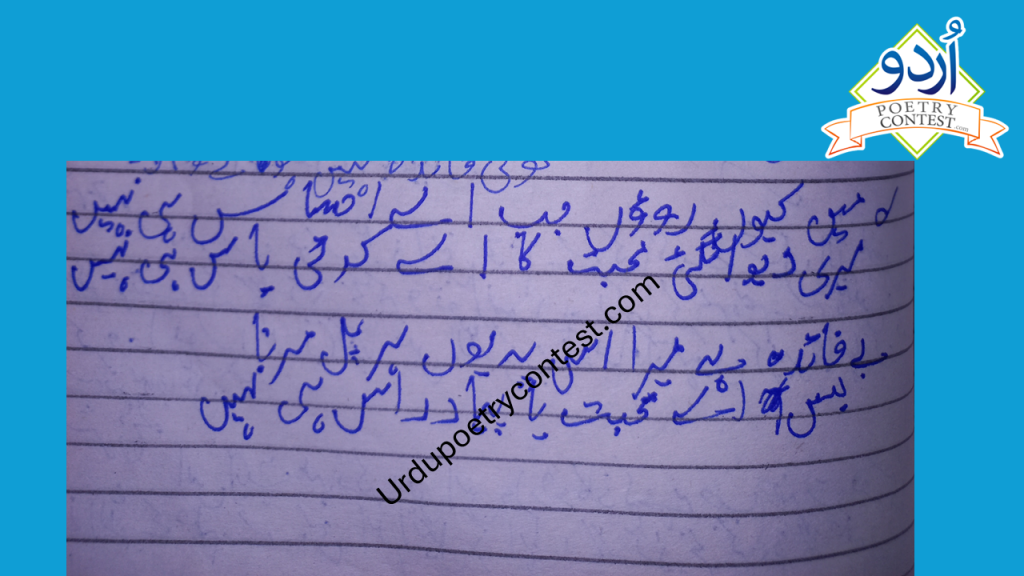 اُردو
POETRY
CONTEST.com
کوئی فائدہ نہیں
میں کیوں روؤں جب اسے احساس ہی نہیں
میری دیوانگئ محبت کا اسے کوئی پاس ہی نہیں
بے فائدہ ہے میرا اس پہ یوں ہر پل مرنا
بس اسے محبت یا راس ہی نہیں
Urdupoetrycontest.com